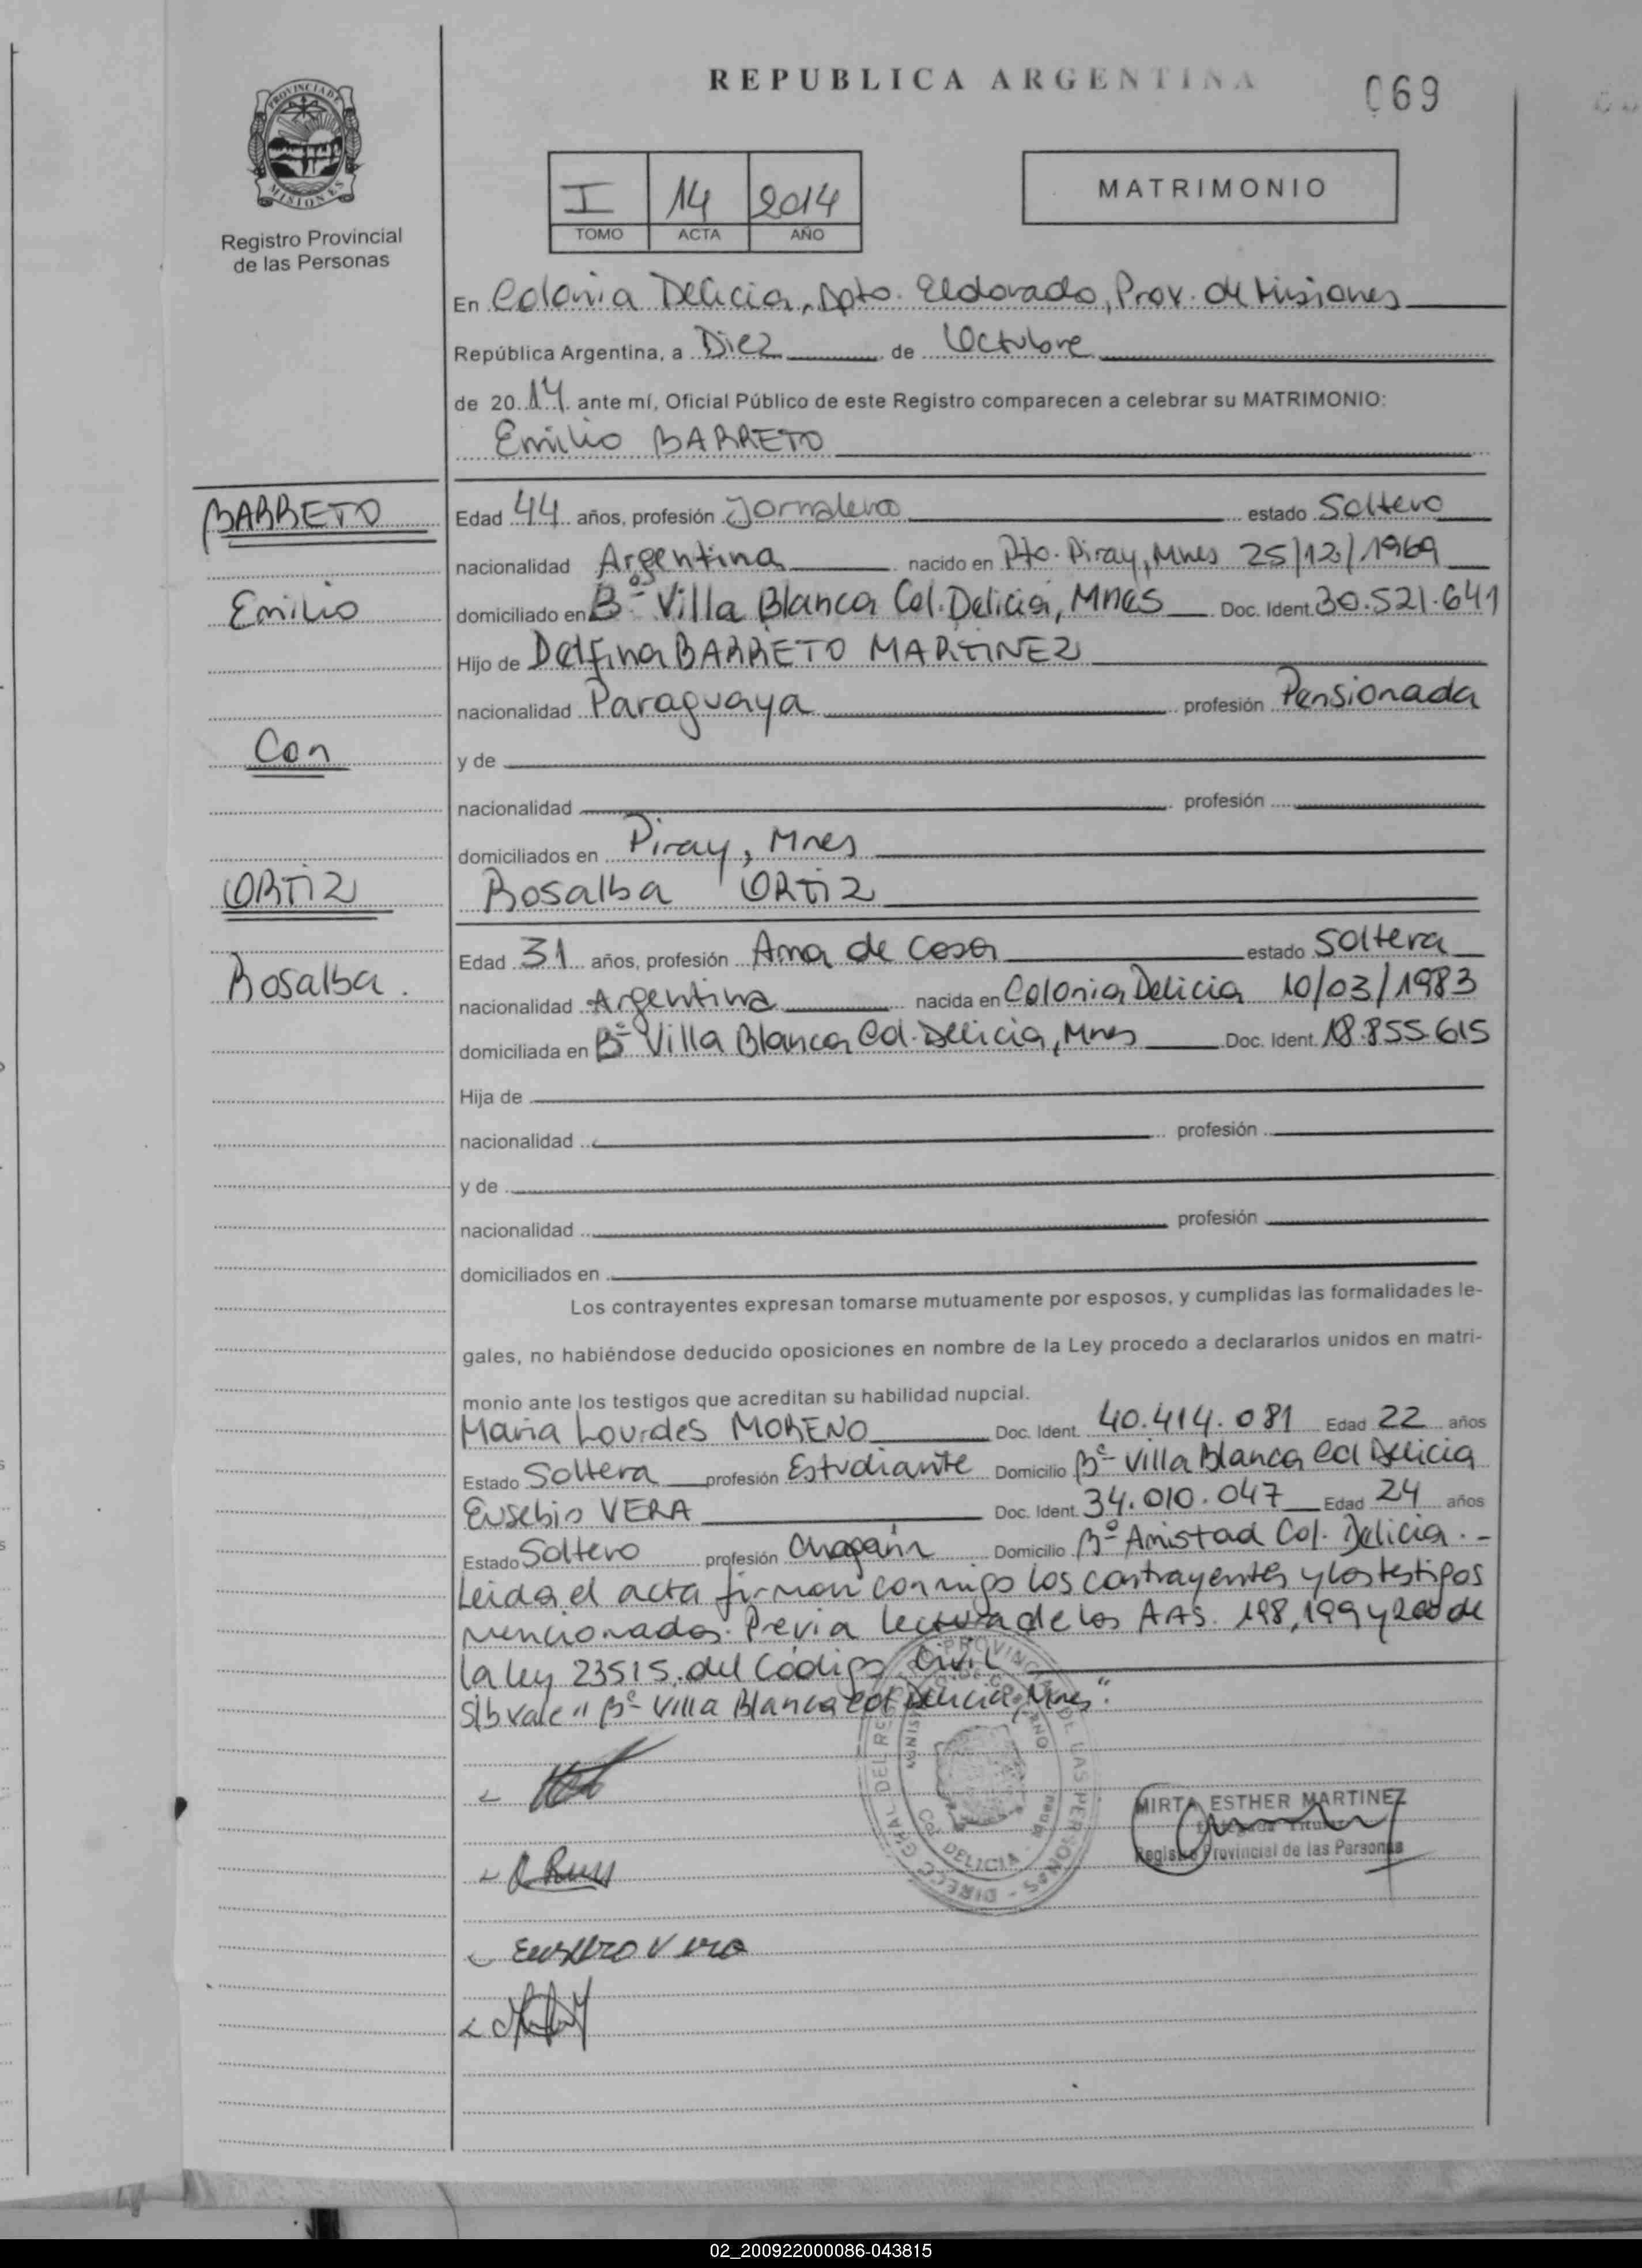 REPUBLICA ARGENTINA
069
PROVINCIA DE
MISIONES
Registro Provincial
de las Personas
I 14 2014
TOMO ACTA AÑO
MATRIMONIO
En Colonia Delicia, Dpto. Eldorado, Prov. de Misiones
República Argentina, a Diez de Octubre
de 2014 ante mí, Oficial Público de este Registro comparecen a celebrar su MATRIMONIO:
Emilio BARRETO
BARRETO
Emilio
Con
ORTIZ
Rosalba.
Edad 44 años, profesión Jornalero estado Soltero
nacionalidad Argentina nacido en Pto. Piray, Mnes 25/12/1969
domiciliado en Bº Villa Blanca Col. Delicia, Mnes Doc. Ident. 30.521.641
Hijo de Delfina BARRETO MARTINEZ
nacionalidad Paraguaya profesión Pensionada
y de
nacionalidad profesión
domiciliados en Piray, Mnes
Rosalba ORTIZ
Edad 31 años, profesión Ama de Casa estado Soltera
nacionalidad Argentina nacida en Colonia Delicia 10/03/1983
domiciliada en Bº Villa Blanca Col. Delicia, Mnes Doc. Ident. 18.855.615
Hija de
nacionalidad profesión
y de
nacionalidad profesión
domiciliados en
Los contrayentes expresan tomarse mutuamente por esposos, y cumplidas las formalidades le-
gales, no habiéndose deducido oposiciones en nombre de la Ley procedo a declararlos unidos en matri-
monio ante los testigos que acreditan su habilidad nupcial.
Maria Lourdes MORENO Doc. Ident. 40.414.081 Edad 22 años
Estado Soltera profesión Estudiante Domicilio Bº Villa Blanca Col Delicia
Eusebio VERA Doc. Ident. 34.010.047 Edad 24 años
Estado Soltero profesión Domicilio Bº Amistad Col. Delicia.-
Leida el acta firman conmigo los contrayentes y los testigos
mencionados. Previa lectura de los AAS. 198, 199 y 200 de
la ley 23515. del Código Civil
S/b vale "Bº Villa Blanca Col Delicia, Mnes".
MIRTA ESTHER MARTINEZ
Delegada Titular
Registro Provincial de las Personas
Eusebio Vera
02_200922000086-043815